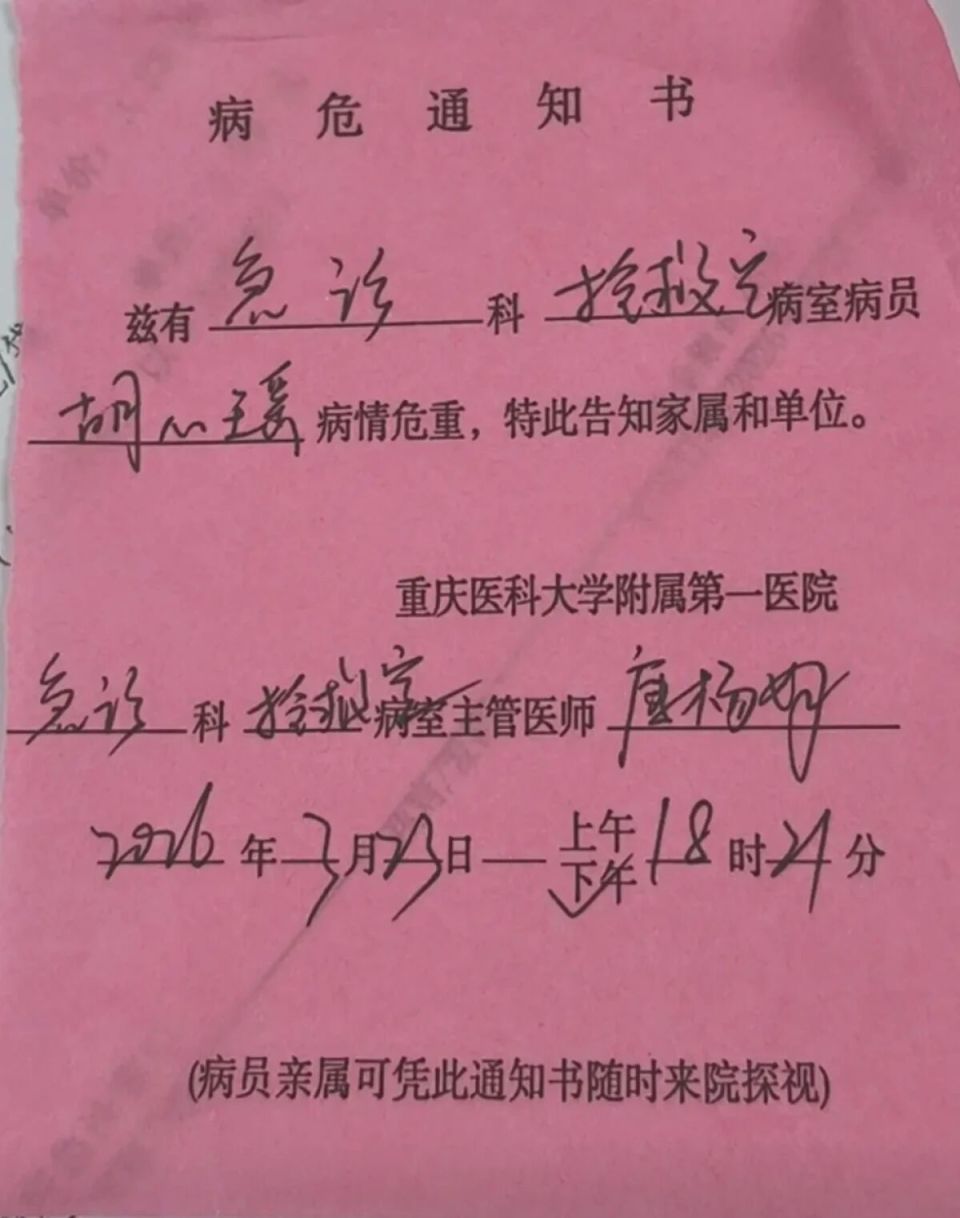 病危通知书
兹有 急诊 科 抢救室 病室病员
胡心瑶 病情危重，特此告知家属和单位。
重庆医科大学附属第一医院
急诊 科 抢救室 病室主管医师 唐杨
2026 年 3 月 23 日 上午 下午 18 时 21 分
(病员亲属可凭此通知书随时来院探视)